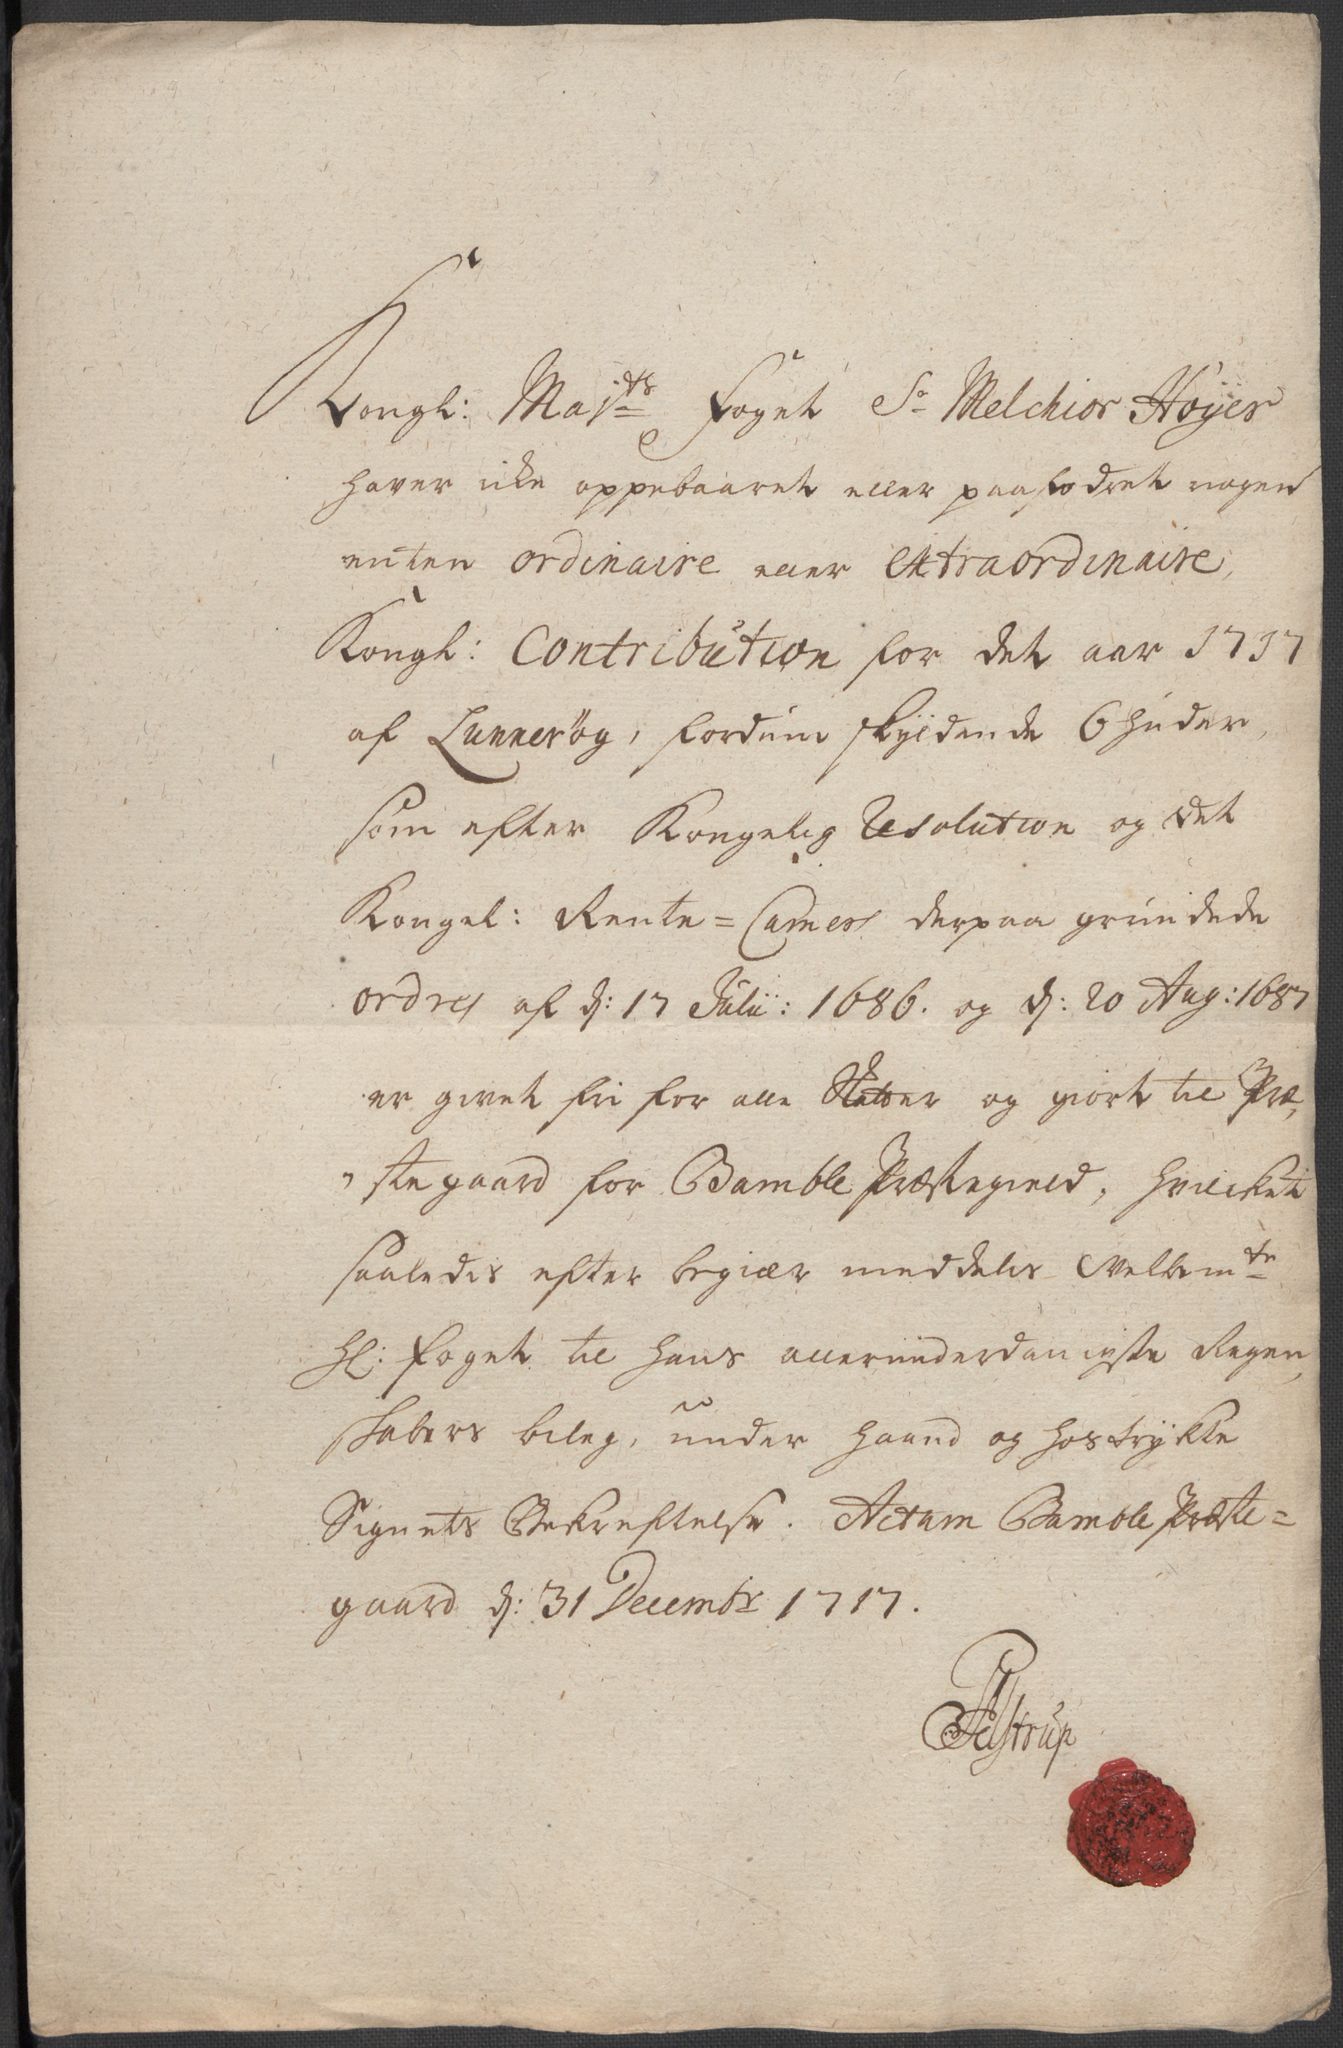 Kongl: Maj:ts Foget Sr Melchior Høyer
haver iche oppebaaret eller paafodret nogen
enten ordinaire eller extraordinaire,
Kongl: Contribution for det aar 1717
af Lunnerøg, fordum skyldende 6 huder,
som efter Kongelig Resolution og det
Kongel: Rente=Camers derpaa grundede
ordres af d: 17 Julii: 1686. og d: 20 Aug: 1687
er givet fri for alle Skatter og giort til Præ,
,stegaard for Bamble Præstegield, hvilcket
saaledis efter begiær meddelis Velbemte
Hl: foget til hans allerunderdanigste Regen,
skabers bileg, under haand og hostrykte
Signets Bekreftelse. Actum Bamble Præste=
gaard d: 31 Decembr 1717.
Pilstrup